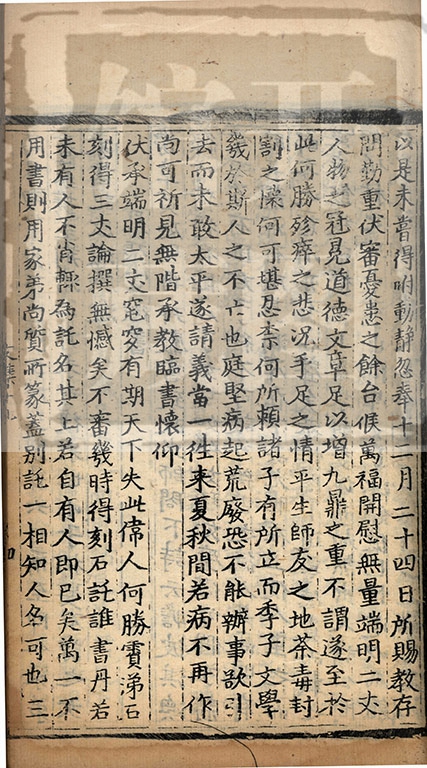 以是未嘗得咐動静忽奉十二月二十四日所賜教存
問勤重伏審憂患之餘台候萬福開慰無量端明二丈
人物之冠見道德文章足以增九鼎之重不謂遂至於
此何勝殄瘁之悲况手足之情平生師友之地荼毒封
割之懷何可堪忍柰何所頼諸子有所立而季子文學
幾於斯人之不亡也庭堅病起荒廢恐不能辦事欲引
去而未敢太平遂請義當一往來夏秋間若病不再作
尚可祈見無階承教臨書懷仰
伏承端明二丈窀穸有期天下失此偉人何勝涕石
刻得三丈論撰無憾矣不審幾時得刻石託誰書丹若
未有人不肖輙為託名其上若自有人即已矣萬一不
用書則用家弟尚質所篆蓋别託一相知人名可也三